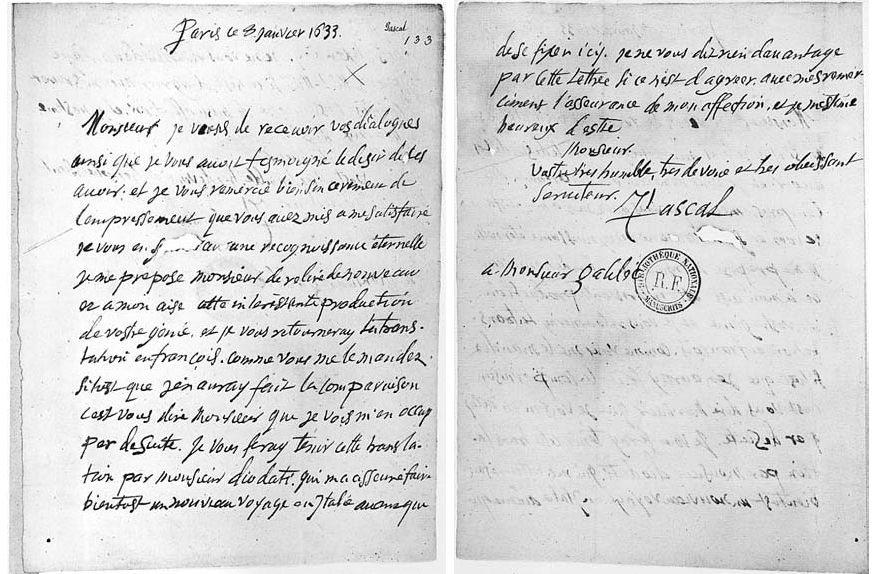 Paris ce 8 Janvier 1633.
Pascal
133
Monsieur je viens de recevoir vos dialogues
ainsi que je vous avoit tesmoigné le desir de les
avoir. et je vous remercie bien sincerement de
l'empressement que vous avez mis a me satisfaire
je vous en une recognoissance éternelle
je me propose monsieur de relire de nouveau
et a mon aise cette interessante production
de vostre génie. et je vous retourneray la trans-
lation en françois. comme vous me le mandez.
sitost que j'en auray fait la comparaison
c'est vous dire Monsieur que je vois m'en occup
per de suite. Je vous feray tenir cette transla-
tion par monsieur diodati. qui m'a asseuré faire
bientost un nouveau voyage en Italie avant que
de se fixer icy. je ne vous dit rien davantage
par cette lettre si ce n'est d'agreer. avec mes remer-
ciment l'asseurance de mon affection. et je m'estime
heureux d'estre.
Monsieur.
Vostre tres humble, tres devoué et tres obeissant
serviteur.
Pascal
a Monsieur galilée
BIBLIOTHÈQUE NATIONALE
R.F.
MANUSCRITS